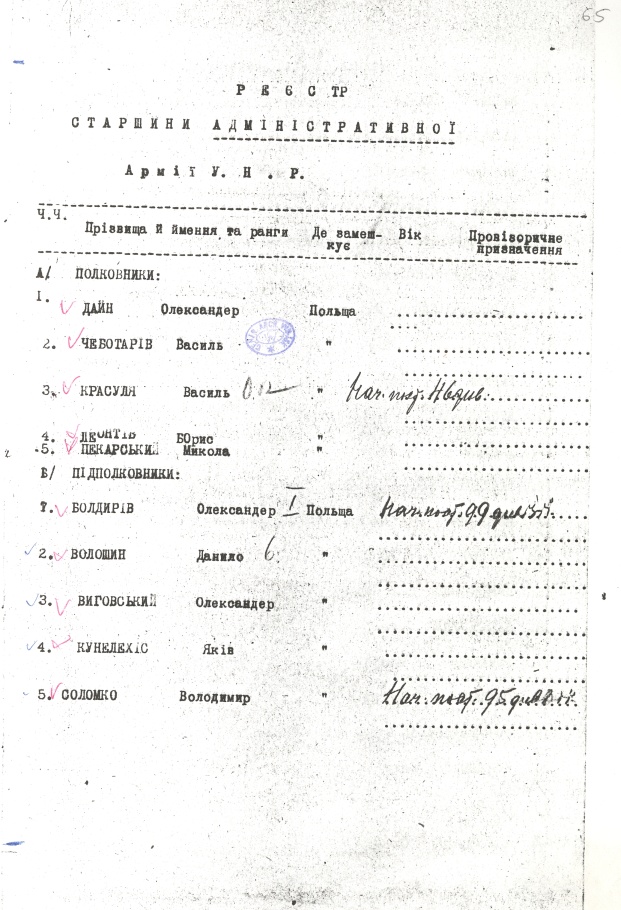 65
Р Е Є С ТР
СТАРШИНИ АДМІНІСТРАТИВНОЇ
Армії У. Н. Р.
Ч.Ч. Прізвища й ймення та ранги Де замеш- Вік Провізоричне
кує призначення
А/ ПОЛКОВНИКИ:
І. ДАЙН Олександер Польща
2. ЧЕБОТАРІВ Василь "
3. КРАСУЛЯ Василь " Нач. пост.
4. ЛЕОНТІВ БОрис "
5. ПЕКАРСЬКИЙ Микола "
Б/ ПІДПОЛКОВНИКИ:
І. БОЛДИРІВ Олександер І Польща Нач. пост. 99 див.
2. ВОЛОШИН Данило 6. "
3. ВИГОВСЬКИЙ Олександер "
4. КУНЕЛЕХІС Яків "
5. СОЛОМКО Володимир " Нач. пост. 95 див.